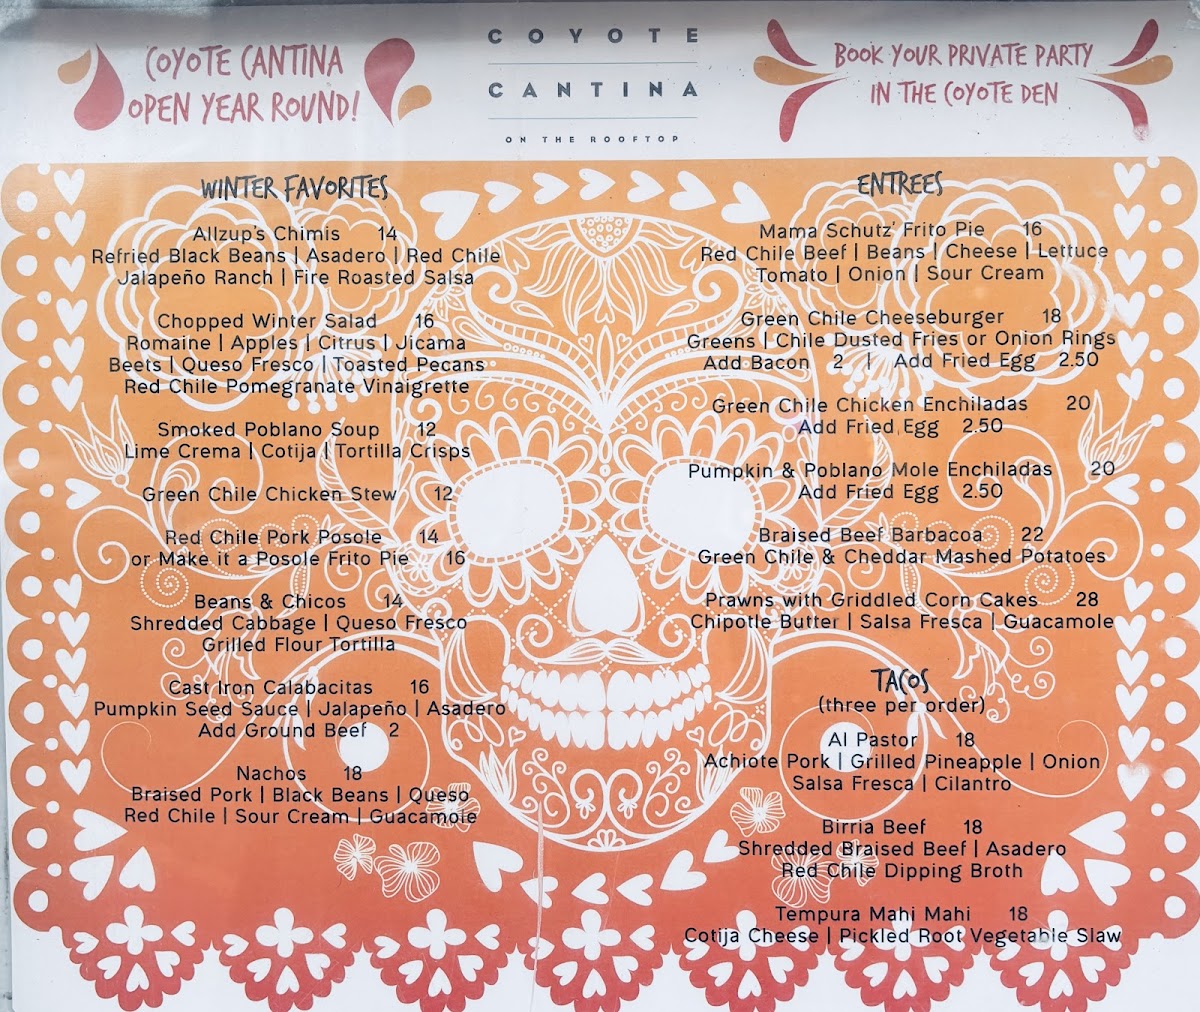 COYOTE CANTINA
OPEN YEAR ROUND!
COYOTE
CANTINA
ON THE ROOFTOP
BOOK YOUR PRIVATE PARTY
IN THE COYOTE DEN
WINTER FAVORITES
Allzup's Chimis 14
Refried Black Beans | Asadero | Red Chile
Jalapeño Ranch | Fire Roasted Salsa
Chopped Winter Salad 16
Romaine | Apples | Citrus | Jicama
Beets | Queso Fresco | Toasted Pecans
Red Chile Pomegranate Vinaigrette
Smoked Poblano Soup 12
Lime Crema | Cotija | Tortilla Crisps
Green Chile Chicken Stew 12
Red Chile Pork Posole 14
or Make it a Posole Frito Pie 16
Beans & Chicos 14
Shredded Cabbage | Queso Fresco
Grilled Flour Tortilla
Cast Iron Calabacitas 16
Pumpkin Seed Sauce | Jalapeño | Asadero
Add Ground Beef 2
Nachos 18
Braised Pork | Black Beans | Queso
Red Chile | Sour Cream | Guacamole
ENTREES
Mama Schutz' Frito Pie 16
Red Chile Beef | Beans | Cheese | Lettuce
Tomato | Onion | Sour Cream
Green Chile Cheeseburger 18
Greens | Chile Dusted Fries or Onion Rings
Add Bacon 2 | Add Fried Egg 2.50
Green Chile Chicken Enchiladas 20
Add Fried Egg 2.50
Pumpkin & Poblano Mole Enchiladas 20
Add Fried Egg 2.50
Braised Beef Barbacoa 22
Green Chile & Cheddar Mashed Potatoes
Prawns with Griddled Corn Cakes 28
Chipotle Butter | Salsa Fresca | Guacamole
TACOS
(three per order)
Al Pastor 18
Achiote Pork | Grilled Pineapple | Onion
Salsa Fresca | Cilantro
Birria Beef 18
Shredded Braised Beef | Asadero
Red Chile Dipping Broth
Tempura Mahi Mahi 18
Cotija Cheese | Pickled Root Vegetable Slaw